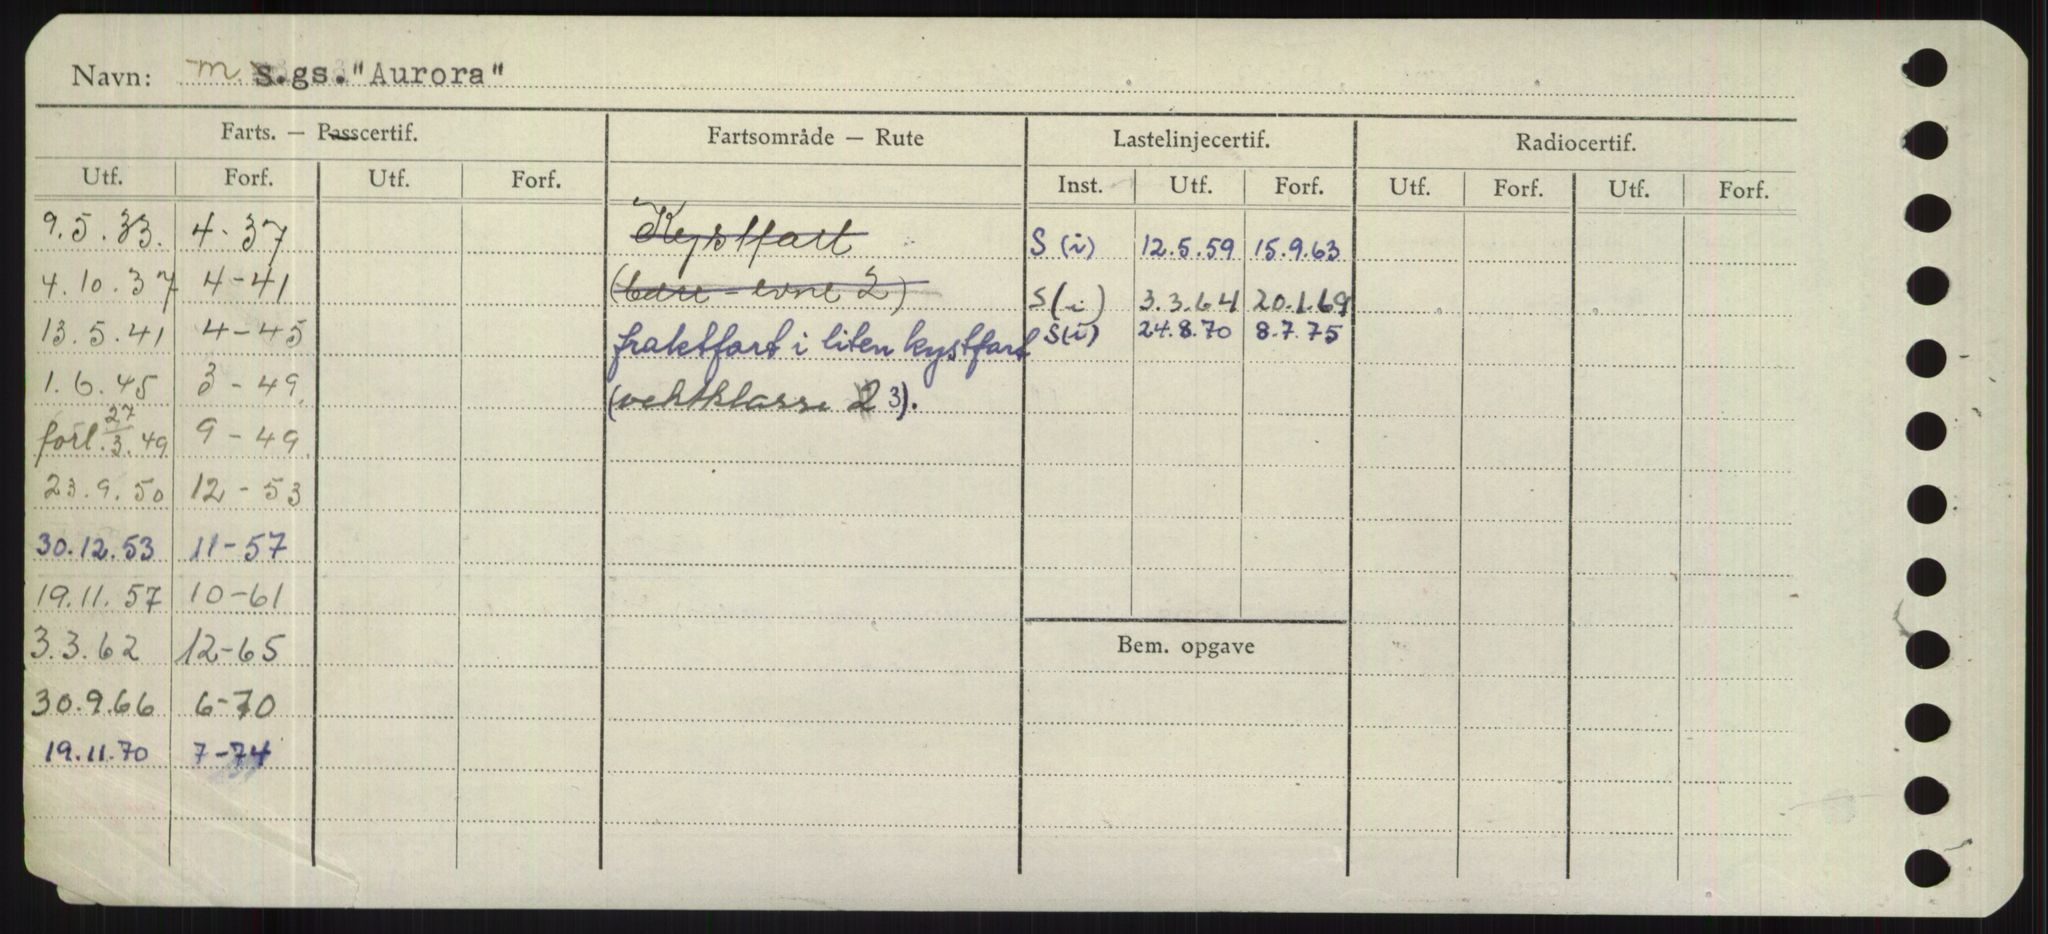 Navn: m. s.gs. "Aurora"
Farts. — Passcertif. Fartsområde — Rute Lastelinjecertif. Radiocertif.
Utf. Forf. Utf. Forf. Inst. Utf. Forf. Utf. Forf. Utf. Forf.
9.5.33. 4-37 Kystfart S (i) 12.5.59 15.9.63
4.10.37 4-41 (bære-evne 2) S(i) 3.3.64 20.1.69
13.5.41 4-45 fraktfart i liten kystfart S(i) 24.8.70 8.7.75
1.6.45 3-49 (vektklasse 2 3).
forl. 27/3.49 9-49
23.9.50 12-53
30.12.53 11-57
19.11.57 10-61
3.3.62 12-65 Bem. opgave
30.9.66 6-70
19.11.70 7-74